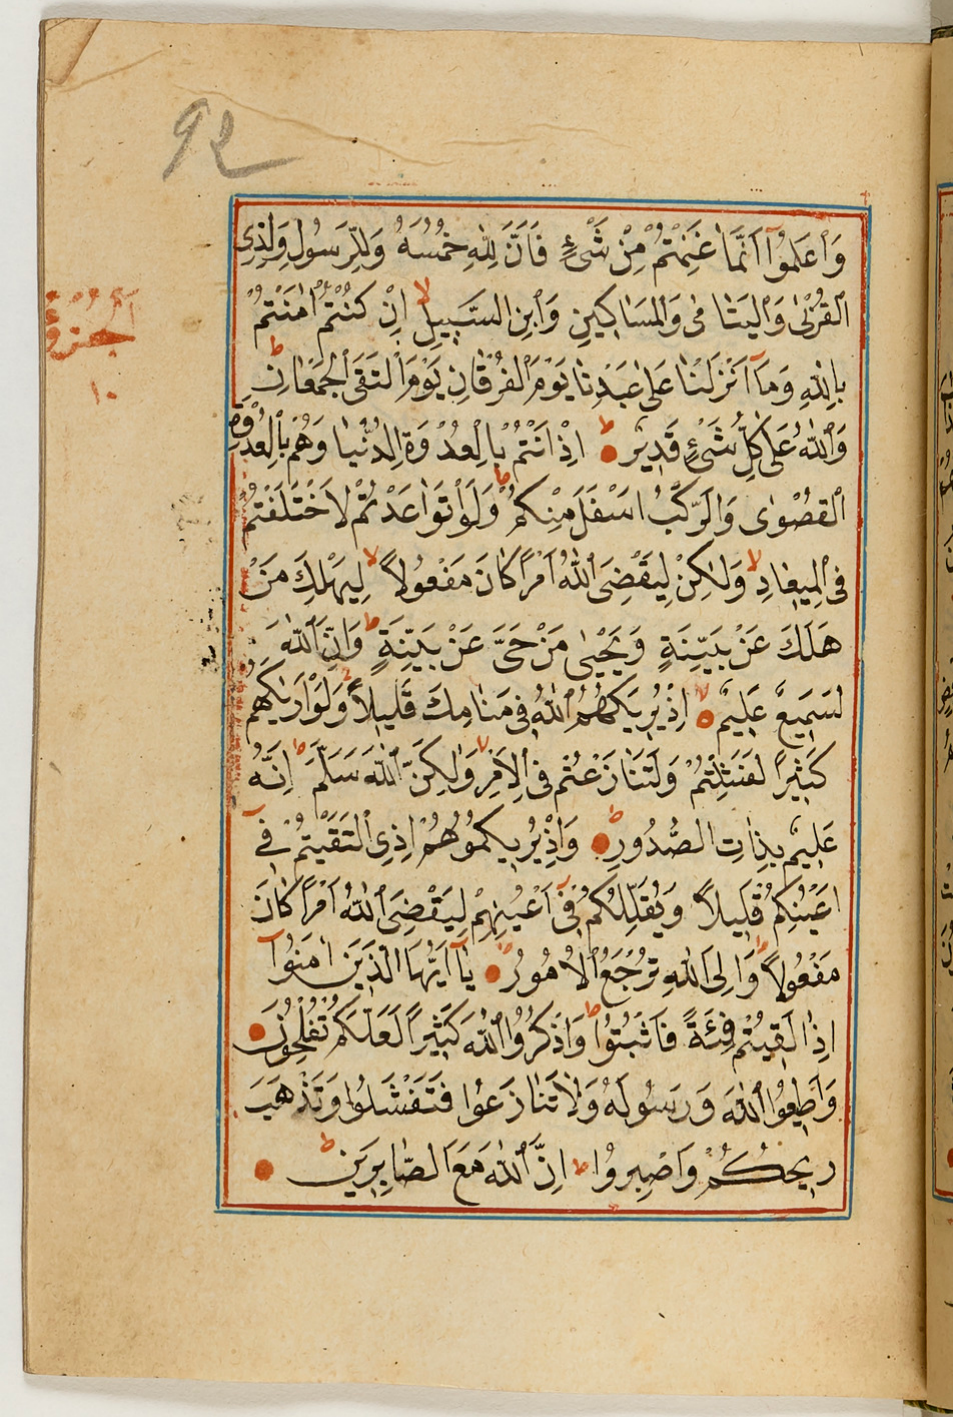 92
وَاعْلَمُوٓا اَنَّمَا غَنِمْتُمْ مِنْ شَىْءٍ فَاَنَّ لِلّٰهِ خُمُسَهُ وَلِلرَّسُولِ وَلِذِى
الْقُرْبٰى وَالْيَتَامٰى وَالْمَسَاكِينِ وَابْنِ السَّبِيلِ اِنْ كُنْتُمْ اٰمَنْتُمْ
بِاللّٰهِ وَمَٓا اَنْزَلْنَا عَلٰى عَبْدِنَا يَوْمَ الْفُرْقَانِ يَوْمَ الْتَقَى الْجَمْعَانِ
وَاللّٰهُ عَلٰى كُلِّ شَىْءٍ قَدِيرٌ اِذْ اَنْتُمْ بِالْعُدْوَةِ الدُّنْيَا وَهُمْ بِالْعُدْوَةِ
الْقُصْوٰى وَالرَّكْبُ اَسْفَلَ مِنْكُمْ وَلَوْ تَوَاعَدْتُمْ لَاخْتَلَفْتُمْ
فِى الْمِيعَادِ وَلٰكِنْ لِيَقْضِىَ اللّٰهُ اَمْرًا كَانَ مَفْعُولًا لِيَهْلِكَ مَنْ
هَلَكَ عَنْ بَيِّنَةٍ وَيَحْيٰى مَنْ حَىَّ عَنْ بَيِّنَةٍ وَاِنَّ اللّٰهَ
لَسَمِيعٌ عَلِيمٌ اِذْ يُرِيكَهُمُ اللّٰهُ فِى مَنَامِكَ قَلِيلًا وَلَوْ اَرٰيكَهُمْ
كَثِيرًا لَفَشِلْتُمْ وَلَتَنَازَعْتُمْ فِى الْاَمْرِ وَلٰكِنَّ اللّٰهَ سَلَّمَ اِنَّهُ
عَلِيمٌ بِذَاتِ الصُّدُورِ وَاِذْ يُرِيكُمُوهُمْ اِذِ الْتَقَيْتُمْ فِٓى
اَعْيُنِكُمْ قَلِيلًا وَيُقَلِّلُكُمْ فِٓى اَعْيُنِهِمْ لِيَقْضِىَ اللّٰهُ اَمْرًا كَانَ
مَفْعُولًا وَاِلَى اللّٰهِ تُرْجَعُ الْاُمُورُ يَٓا اَيُّهَا الَّذِينَ اٰمَنُٓوا
اِذَا لَقِيتُمْ فِئَةً فَاثْبُتُوا وَاذْكُرُوا اللّٰهَ كَثِيرًا لَعَلَّكُمْ تُفْلِحُونَ
وَاَطِيعُوا اللّٰهَ وَرَسُولَهُ وَلَا تَنَازَعُوا فَتَفْشَلُوا وَتَذْهَبَ
رِيحُكُمْ وَاصْبِرُوا اِنَّ اللّٰهَ مَعَ الصَّابِرِينَ
اَلْجُزْءُ
١٠